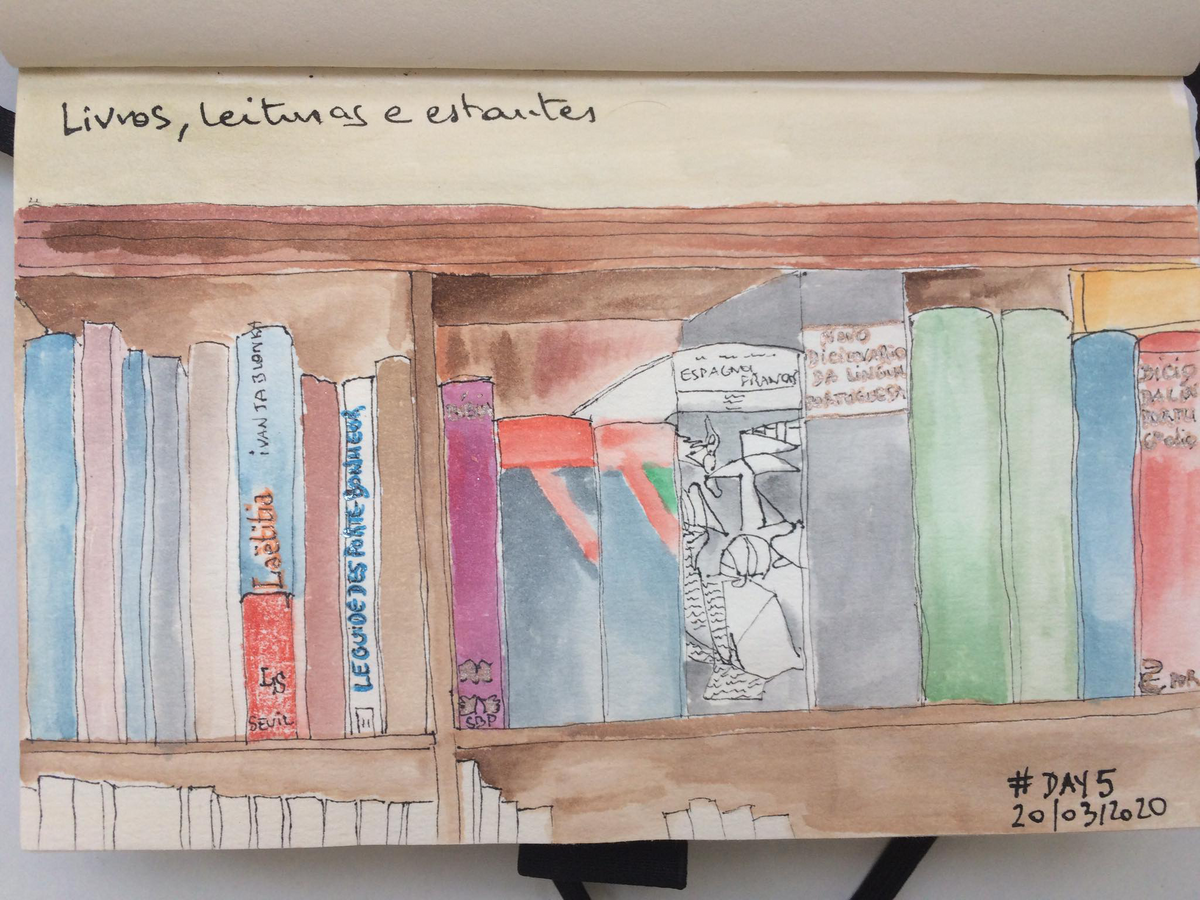 Livros, leituras e estantes
IVAN JABLONKA
Laëtitia
LS
SEUIL
LE GUIDE DES PORTE-BONHEUR
SBP
ESPAGNOL
FRANÇAIS
NOVO
DICIONÁRIO
DA LÍNGUA
PORTUGUESA
DICIO
DA LÍN
PORTU
GUESA
# DAY 5
20/03/2020